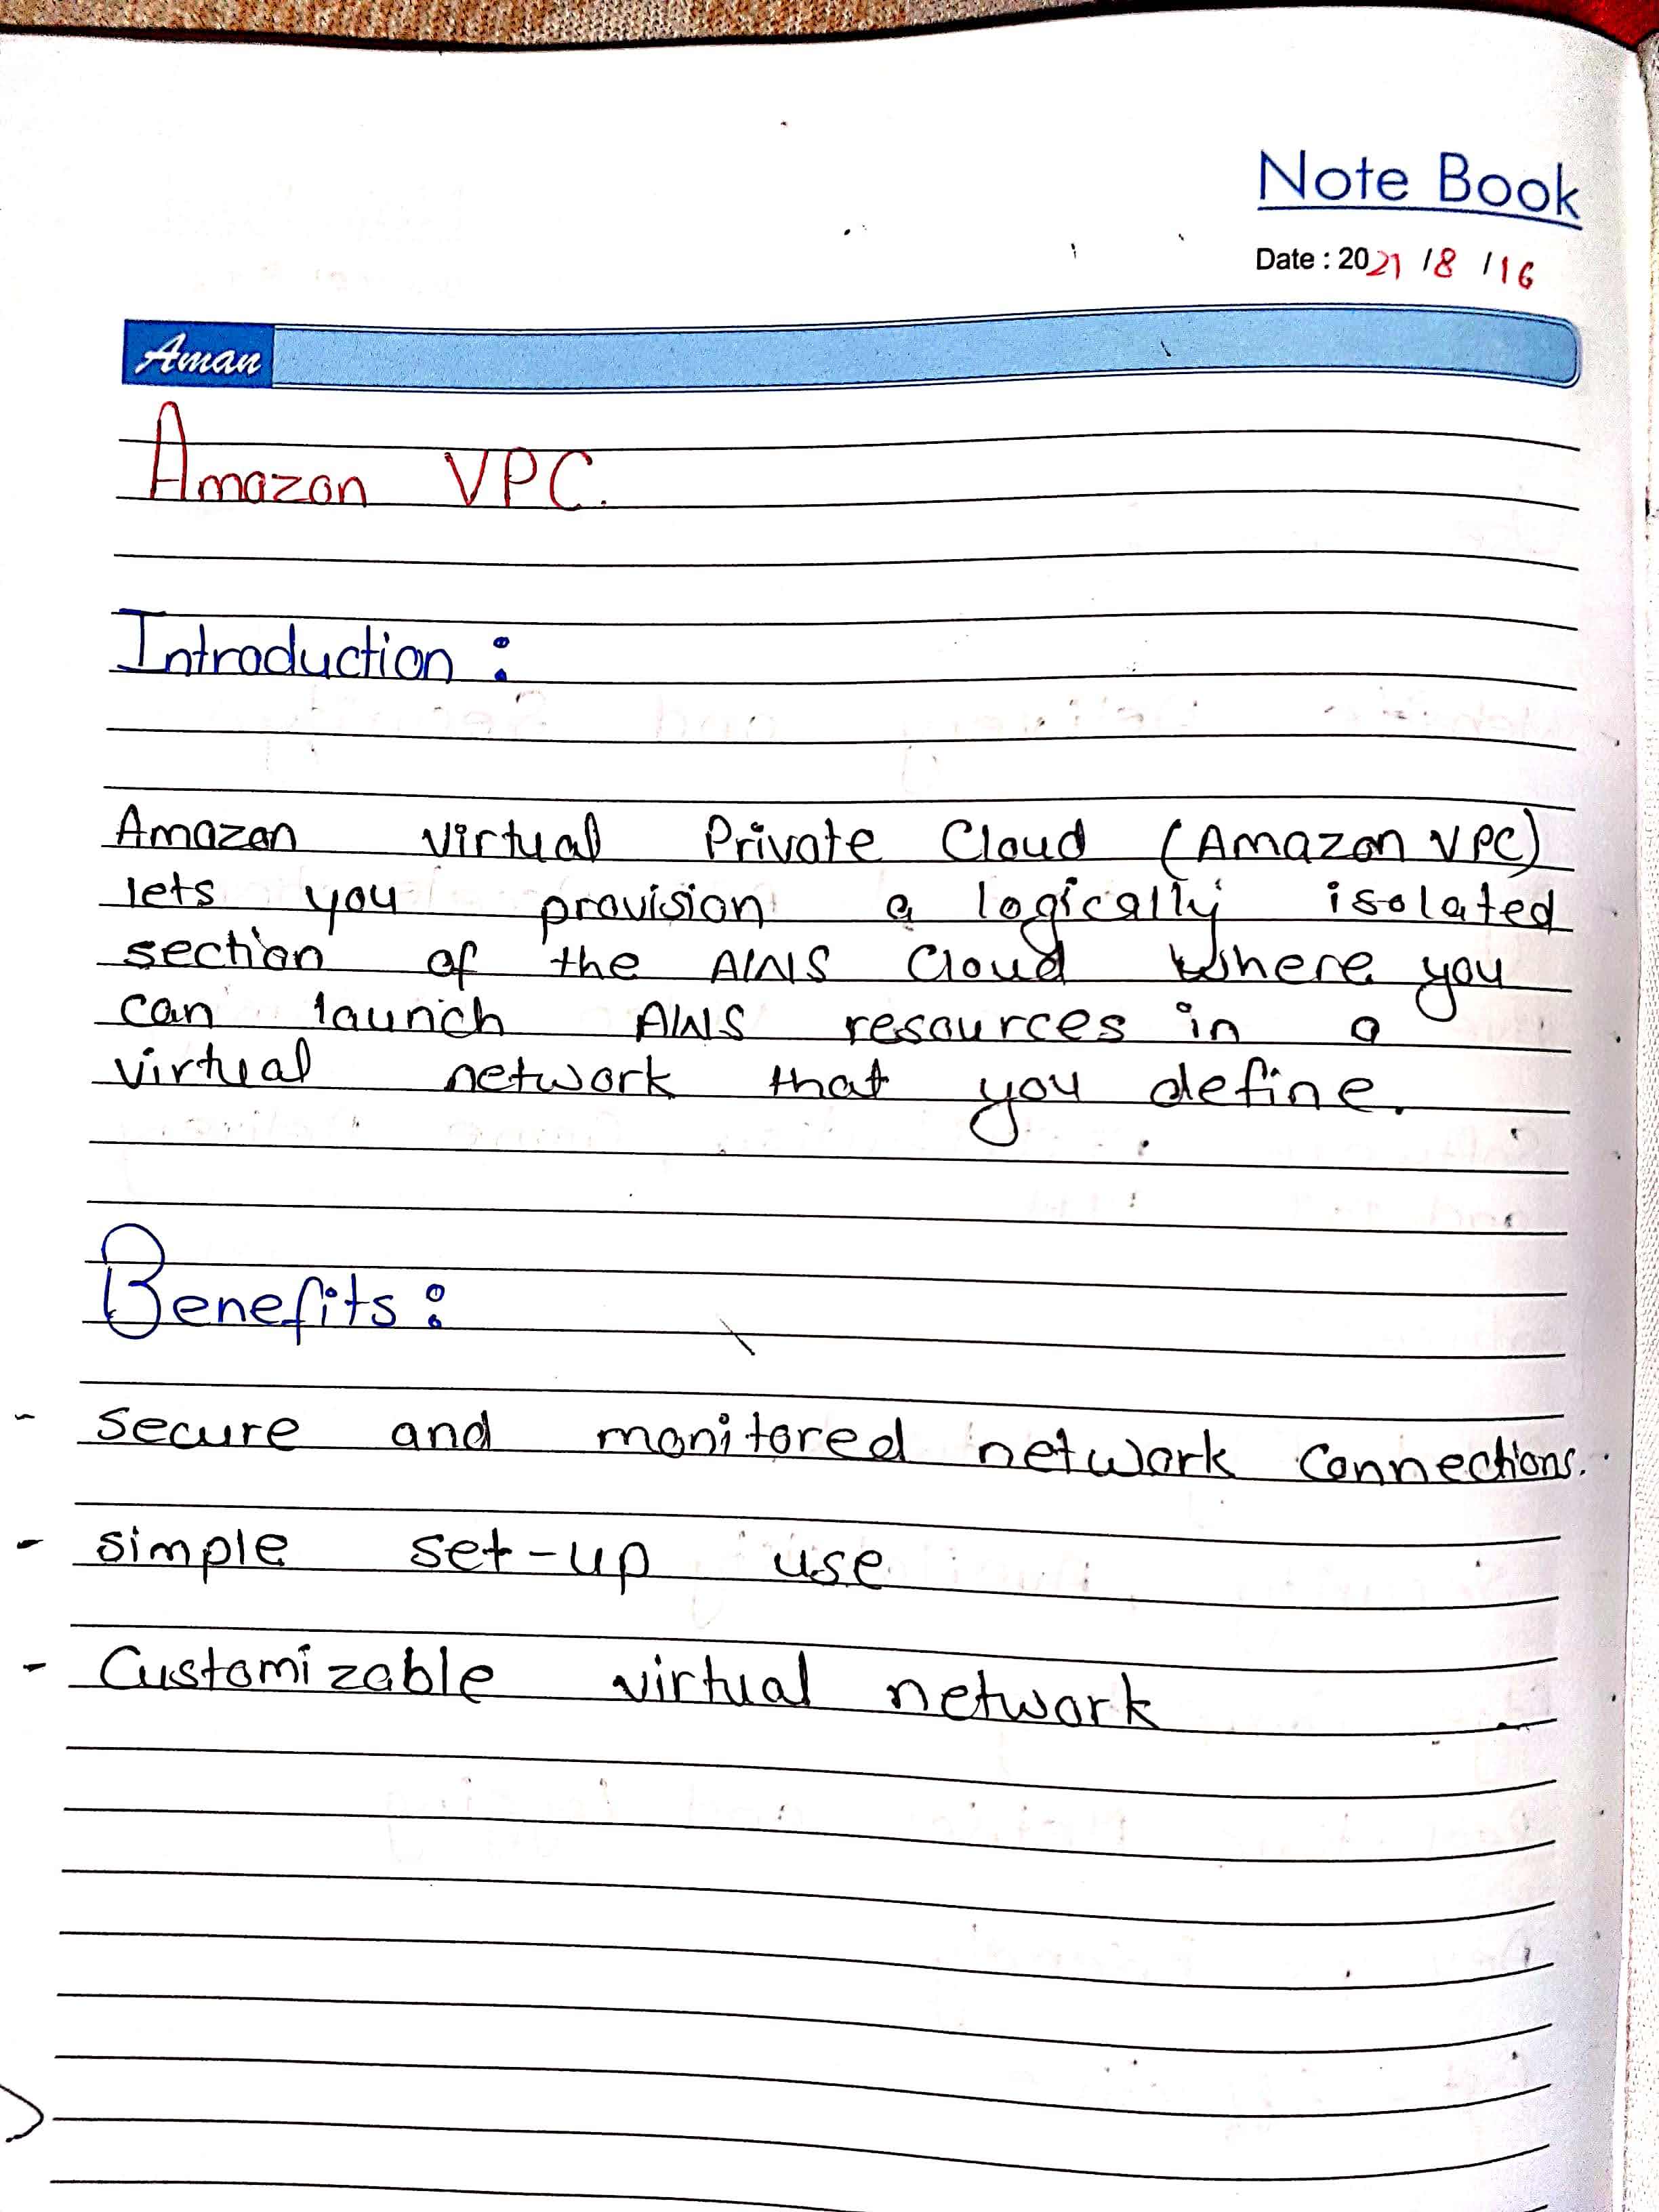 Note Book
Date : 2021 /8 /16
Aman
Amazon VPC.
Introduction :
Amazon virtual Private Cloud (Amazon VPC)
lets you provision a logically isolated
section of the AWS Cloud Where you
can launch AWS resources in a
virtual network that you define.
Benefits :
- secure and monitored network Connections.
- simple set-up use
- Customizable virtual network